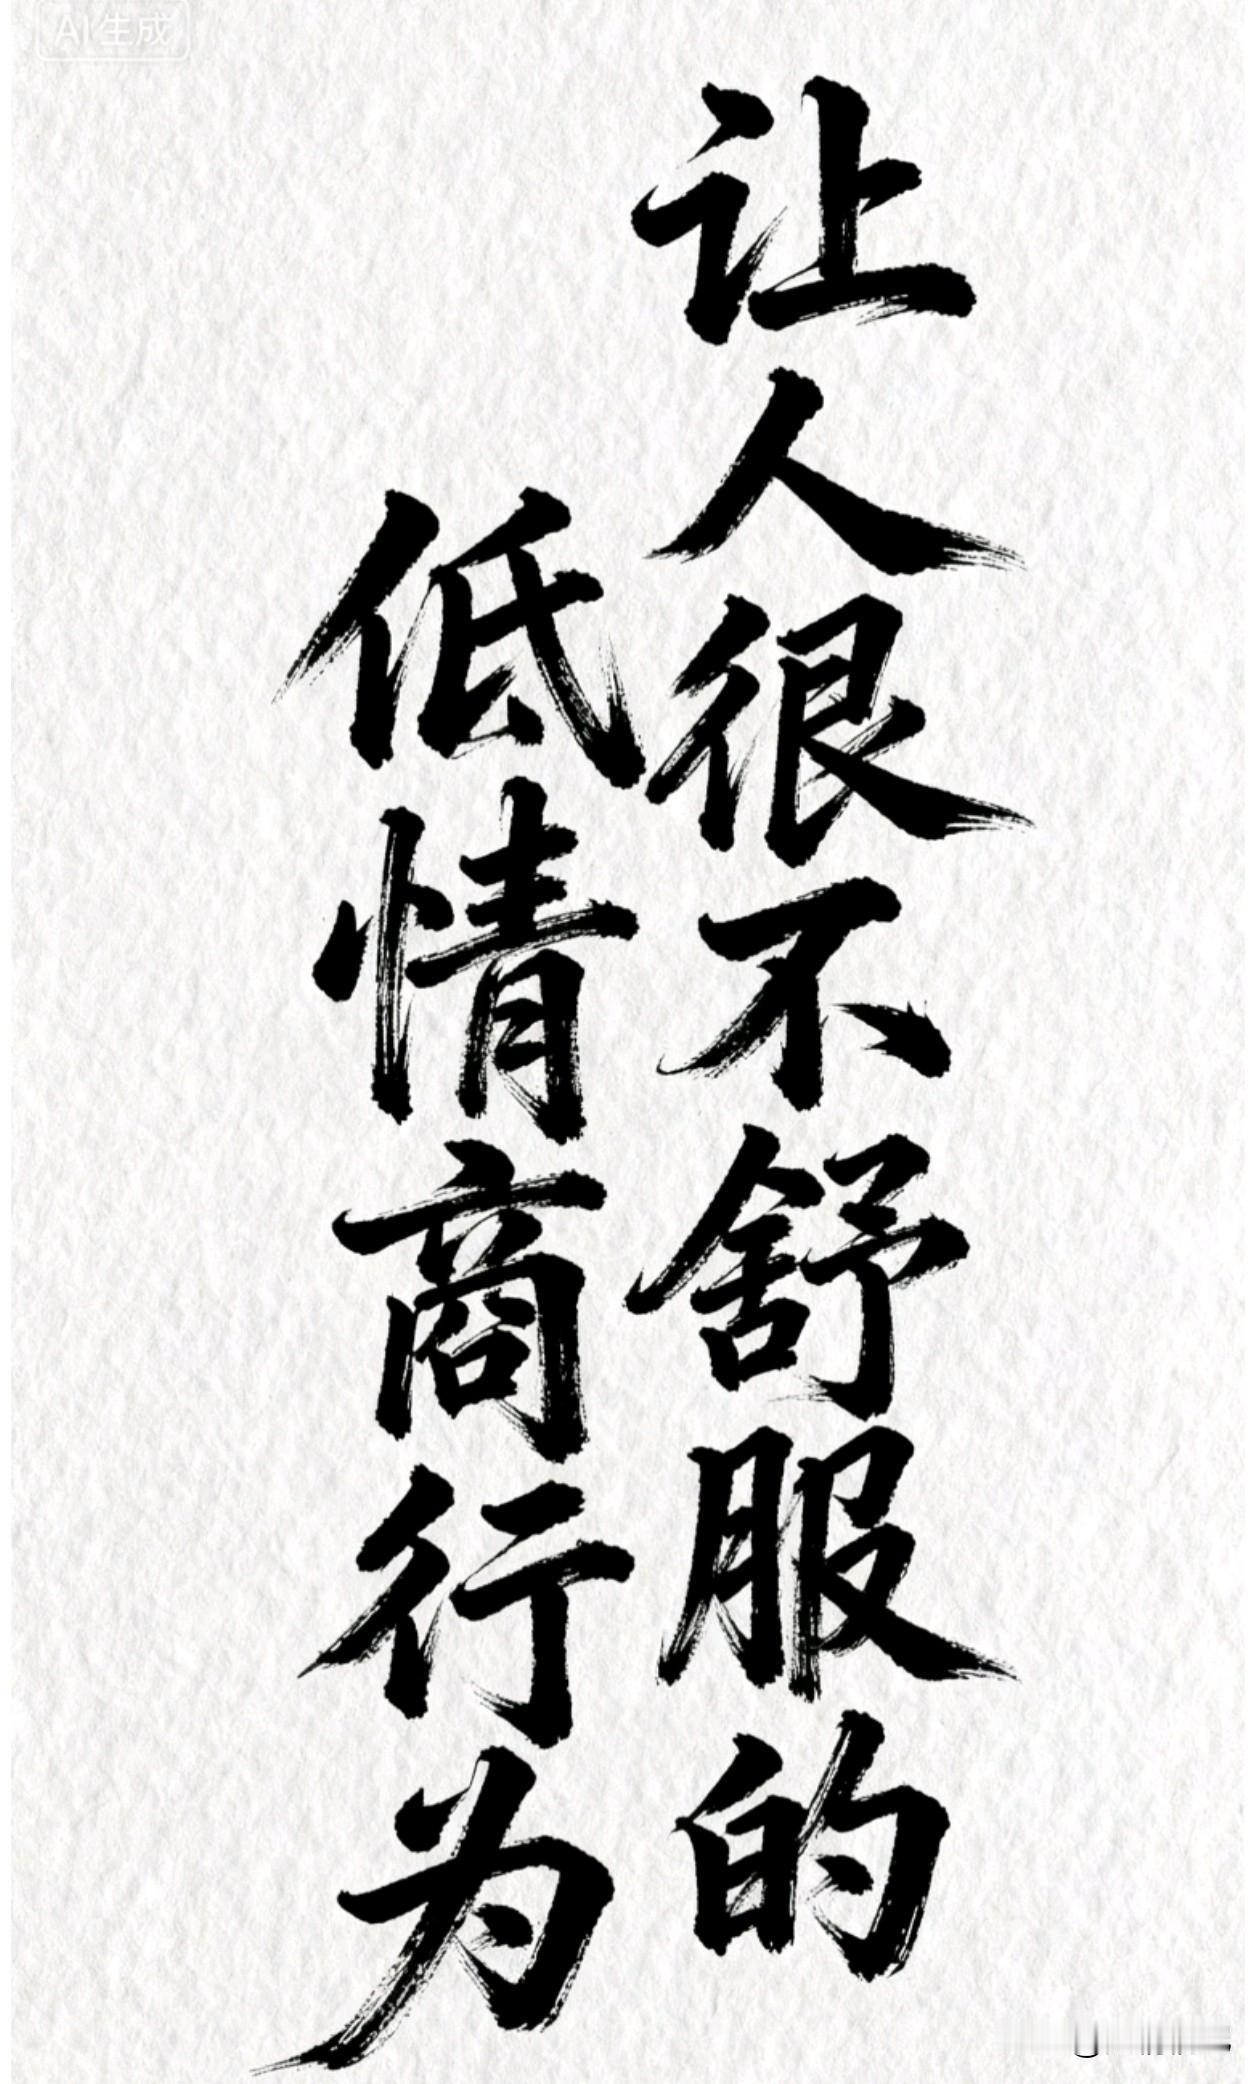 AI生成
让人很不舒服的
低情商行为